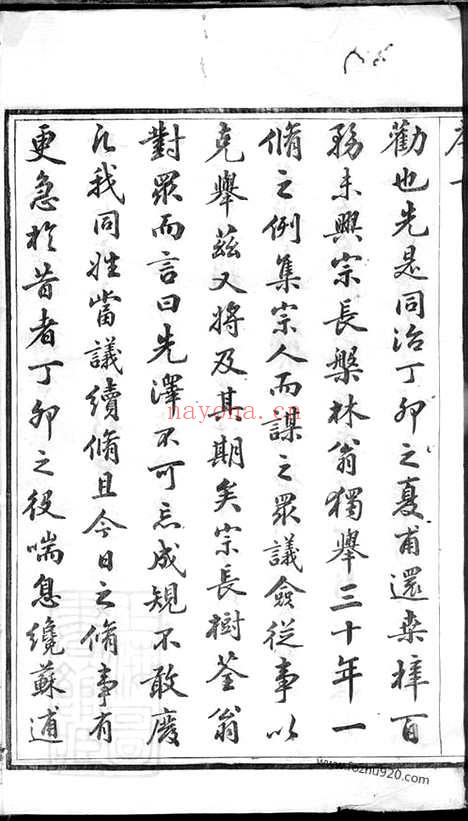 序一
勸也先是同治丁卯之夏甫還桑梓百
務未興宗長槃林翁獨舉三十年一
脩之例集宗人而謀之眾議僉從事以
克舉茲又將及其期矣宗長樹荃翁
對眾而言曰先澤不可忘成規不敢廢
凡我同姓當議續脩且今日之脩事有
更急於昔者丁卯之役喘息纔蘇逋
nayona.cn
www.fozhu920.com